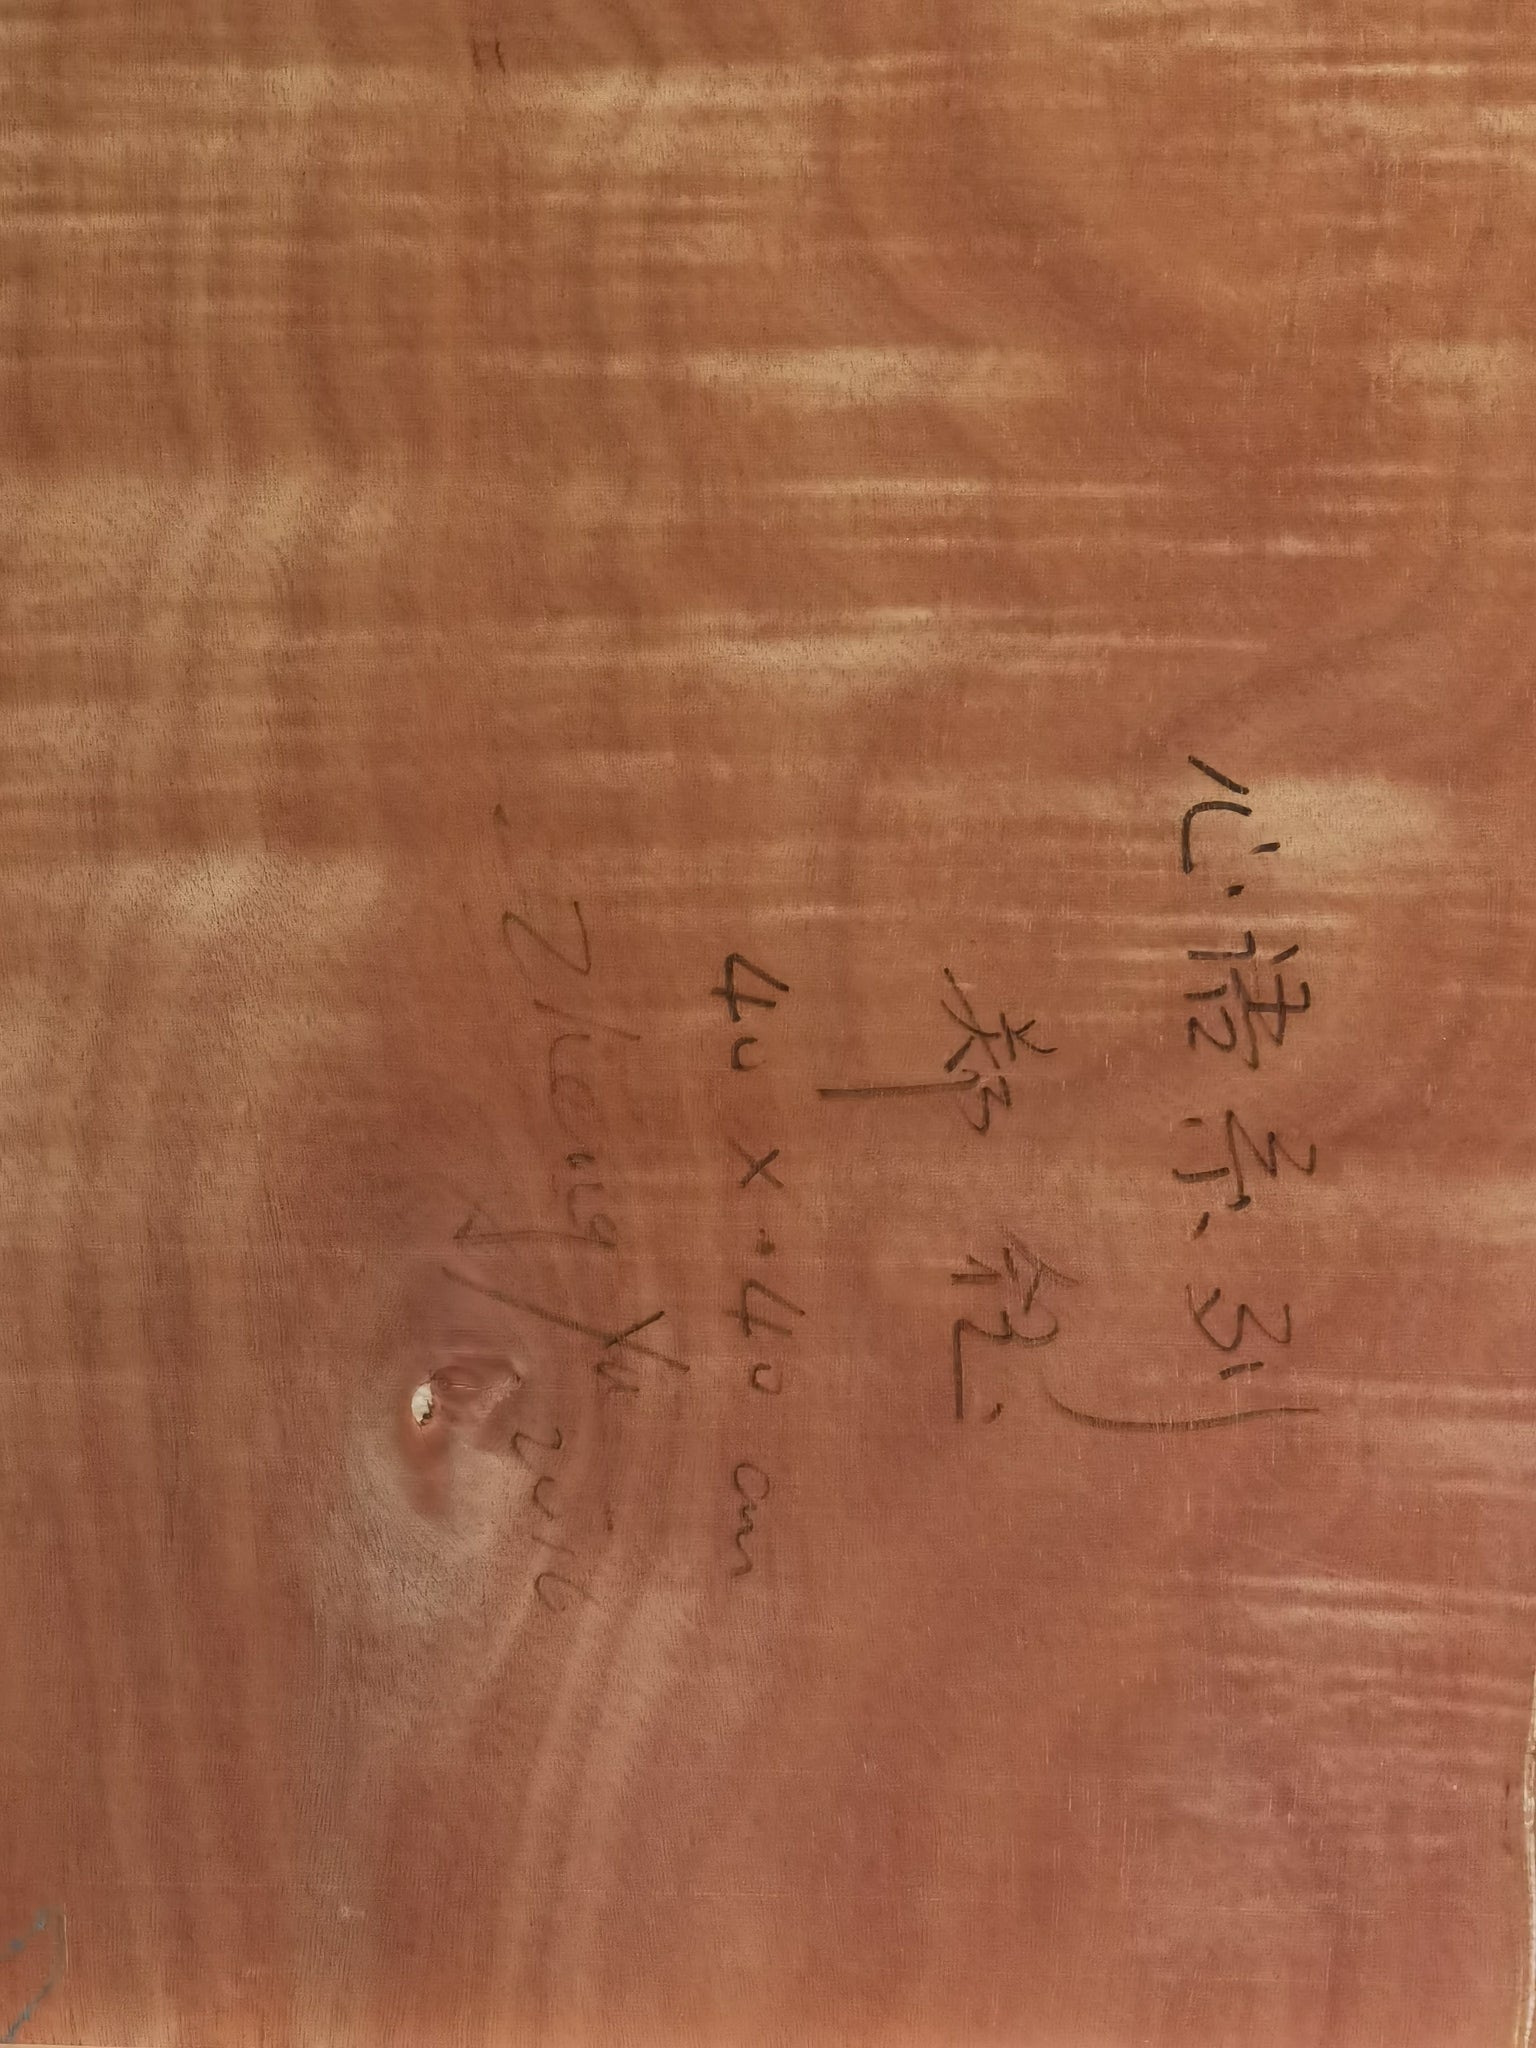 心语系列
郑钗
40 x 40 cm
Zheng Yu
2016